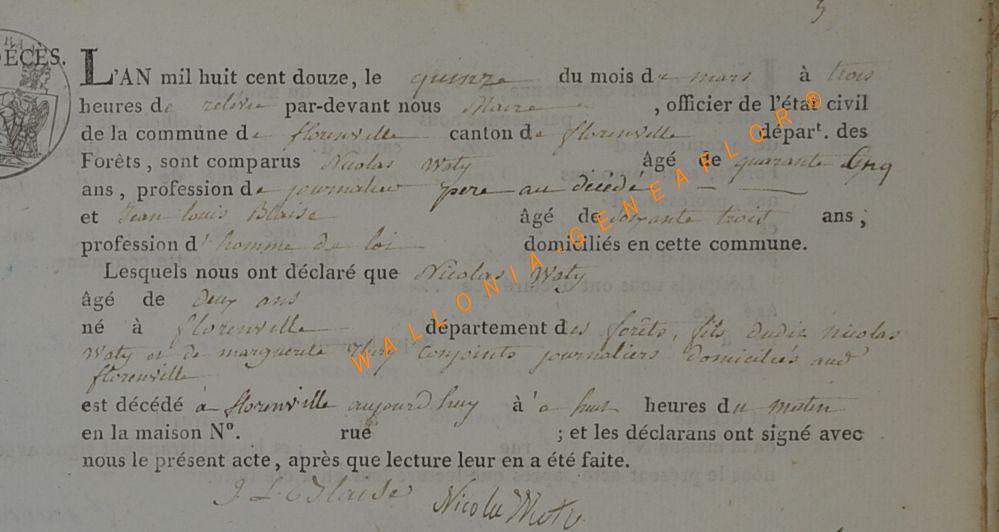 5
DÉCÈS.
L'AN mil huit cent douze, le quinze du mois de mars à trois
heures de relevée par-devant nous Maire, officier de l'état civil
de la commune de florenville canton de florenville départ. des
Forêts, sont comparus Nicolas Waty âgé de quarante Cinq
ans, profession de journalier pere au décédé
et Jean louis Blaise âgé de soixante trois ans;
profession d'homme de loi domiciliés en cette commune.
Lesquels nous ont déclaré que Nicolas Waty
âgé de deux ans
né à florenville département des forêts, fils dudit nicolas
Waty et de marguerite conjoints journaliers domiciliés aud
florenville
est décédé a florenville aujourd'huy à huit heures du matin
en la maison N°. rue ; et les déclarans ont signé avec
nous le présent acte, après que lecture leur en a été faite.
J L Blaise Nicolas Waty
WALLONIA-GENEAFLOR®